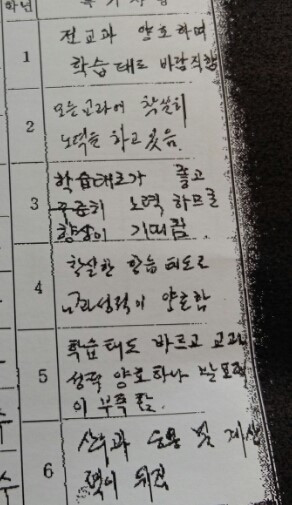 학년
1
전교과 양호하며
학습태도 바람직함
2
모든교과에 착실히
노력을 하고 있음.
3
학습태도가 좋고
꾸준히 노력 하므로
향상이 기대됨.
4
착실한 학습 태도로
교과성적이 양호함
5
학습태도 바르고 교과
성적 양호하나 발표력
이 부족함.
6
산수과 응용 및 계산
력이 뒤짐
수